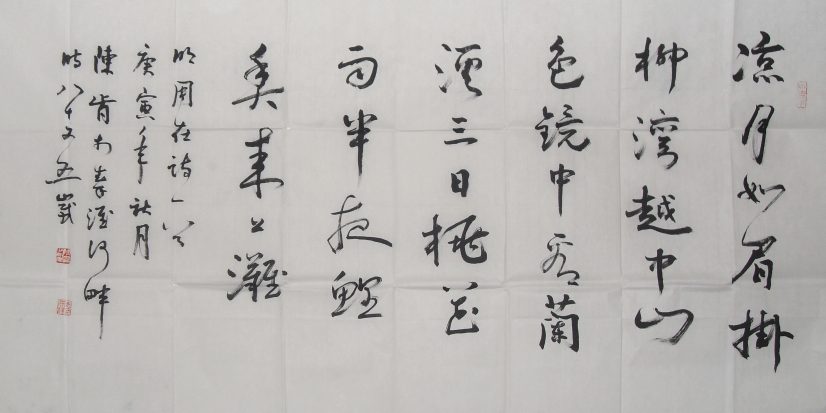 涼月如眉掛
柳灣越中山
色鏡中看蘭
溪三日桃花
雨半夜鯉
魚来上灘
在詩一首
庚寅年秋月
陳肯於秦淮河畔
時八十又五歲